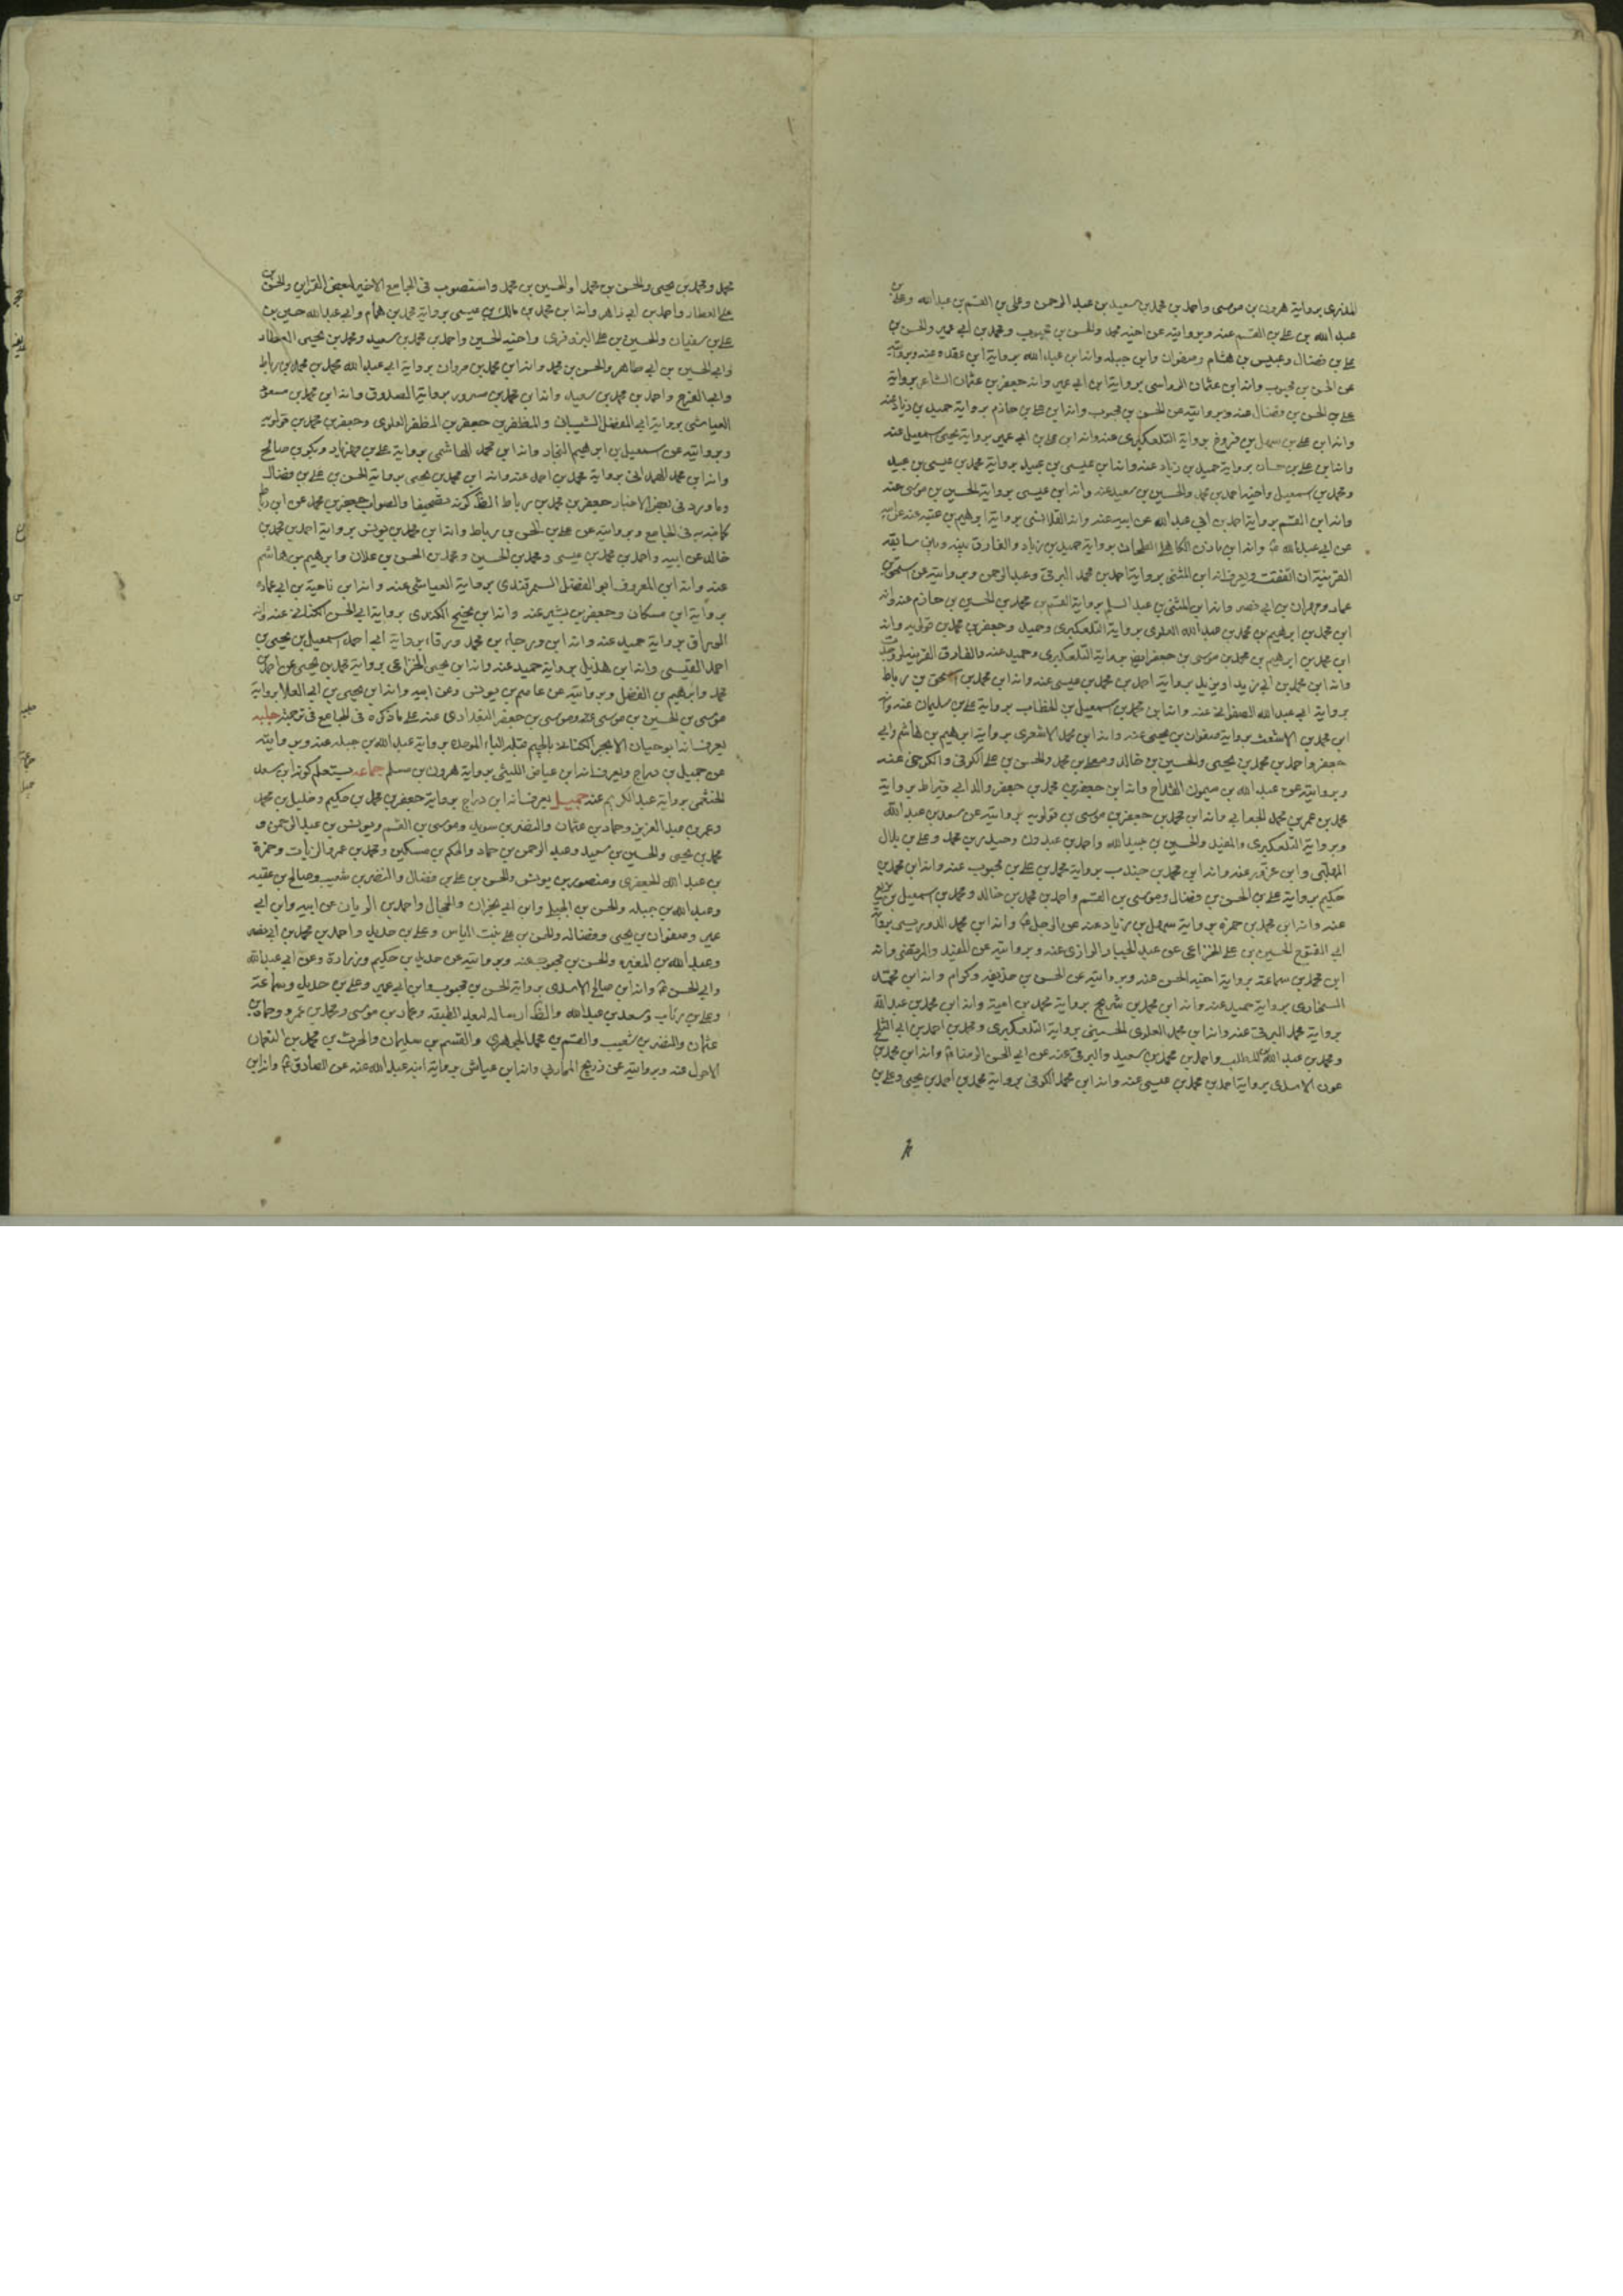 المنذري برواية هرون بن موسى واحمد بن محمد بن سعيد بن عبد الرحمن وعلى بن القسم بن عبدالله وعلى بن
عبد الله بن على بن القسم عنه وبروايته عن اخيه محمد والحسن بن محبوب ومحمد بن ابي عمير والحسن بن
على بن فضال وعبيس بن هشام وصفوان وابن جبله وانه ابن عبد الله برواية ابن عقده عنه وبروايته
عن الحسن بن محبوب وانه ابن عثمان الرواسى برواية ابن ابي عمير وانه جعفر بن عثمان الشاعر برواية
على بن الحسن بن فضال عنه وبروايته عن الحسن بن محبوب وانه ابن على بن حازم برواية حميد بن زياد عنه
وانه ابن على بن سهل بن فروخ برواية التلعكبرى عنه وانه ابن على بن ابي عمير برواية يحيى اسمعيل عنه
وانه ابن على بن حسان برواية حميد بن زياد عنه وانه ابن عيسى بن عبيد برواية محمد بن عيسى بن عبيد
ومحمد بن اسمعيل واخيه احمد بن محمد والحسين بن سعيد عنه وانه ابن عيسى برواية الحسين بن موسى عنه
وانه ابن القسم برواية احمد بن ابي عبد الله عن ابيه عنه وانه القلانسى برواية ابرهيم بن عتبه عنه
عن ابي عبد الله ع وانه ابن مازن الكاهلى الطحان برواية حميد بن زياد والفارق بينه وبين سابقه
القرينة ان اتفقت ويعرف انه ابن المثنى برواية احمد بن محمد البرقى وعبد الرحمن وبروايته عن اسحق بن
عمار وحمران بن ابي نصر وانه ابن المثنى بن عبد السلم برواية القسم بن محمد بن الحسين بن حازم عنه وانه
ابن محمد بن ابرهيم بن محمد بن عبد الله العلوى برواية التلعكبرى وحميد وجعفر بن محمد بن قولويه وانه
ابن محمد بن ابرهيم بن محمد بن موسى بن جعفر ايض برواية التلعكبرى وحميد عنه والفارق القرينة
وانه ابن محمد بن ابي زيد او يزيد برواية احمد بن محمد بن عيسى عنه وانه ابن محمد بن اسحق بن رباط
برواية ابي عبد الله الصفوانى عنه وانه ابن محمد بن اسمعيل بن الخطاب برواية على بن سليمان عنه وانه
ابن محمد بن الاشعث برواية صفوان بن يحيى عنه وانه ابن محمد الاشعرى برواية ابرهيم بن هاشم وابي
جعفر واحمد بن محمد بن يحيى والحسين بن خالد ومعلى بن محمد والحسن بن على الكوفى والكرخى عنه
وبروايته عن عبد الله بن ميمون القداح وانه ابن جعفر بن محمد بن جعفر والد ابي قيراط برواية
محمد بن عمر بن محمد الجعابي وانه ابن محمد بن جعفر بن موسى بن قولويه بروايته عن سعد بن عبد الله
وبرواية التلعكبرى والمفيد والحسين بن عبيد الله واحمد بن عبدون وحيدر بن محمد وعلى بن بلال
المهلبى وابن عزور عنه وانه ابن محمد بن جندب برواية محمد بن على بن محبوب عنه وانه ابن محمد بن
حكيم برواية على بن الحسن بن فضال وموسى بن القسم واحمد بن محمد بن خالد ومحمد بن اسمعيل بن بزيع
عنه وانه ابن محمد بن حمزه برواية سهل بن زياد عنه عن الرجل ع وانه ابن محمد الدوريستى برواية
ابي الفتوح الحسين بن على الخزاعى عن عبد الجبار الرازى عنه وبروايته عن المفيد والمرتضى وانه
ابن محمد بن سماعة برواية اخيه الحسن عنه وبروايته عن الحسن بن حذيفه وكرام وانه ابن محمد
السنجارى برواية حميد عنه وانه ابن محمد بن شريح برواية محمد بن امية وانه ابن محمد بن عبد الله
برواية محمد البرقى عنه وانه ابن محمد العلوى الحسينى برواية التلعكبرى ومحمد بن احمد بن ابي الثلج
ومحمد بن عبد الله بن المطلب واحمد بن محمد بن سعيد والبرقى عنه عن ابي الحسن الرضا ع وانه ابن محمد بن
عون الاسدى برواية احمد بن محمد بن عيسى عنه وانه ابن محمد الكوفى برواية محمد بن احمد بن يحيى وعلى بن
محمد ومحمد بن يحيى والحسن بن محمد او الحسين بن محمد واستصوب فى الجامع الاخير لبعض القراين والحسن بن
على العطار واحمد بن ابي زاهر وانه ابن محمد بن مالك بن عيسى برواية محمد بن همام وابي عبد الله حسين بن
على بن سفيان والحسين بن على البزوفرى واخيه الحسين واحمد بن محمد بن سعيد ومحمد بن يحيى العطار
وابي الحسين بن ابي طاهر والحسن بن محمد وانه ابن محمد بن مروان برواية ابي عبد الله محمد بن محمد بن رباط
وابي الفرج واحمد بن محمد بن سعيد وانه ابن محمد بن مسرور برواية الصدوق وانه ابن محمد بن مسعود
العياشى برواية ابي المفضل الشيبانى والمظفر بن جعفر بن المظفر العلوى وجعفر بن محمد بن قولويه
وبروايته عن اسمعيل بن ابرهيم النجار وانه ابن محمد الهاشمى برواية على بن مهزيار وبكر بن صالح
وانه ابن محمد برواية محمد بن احمد عنه وانه ابن محمد بن يحيى برواية الحسن بن على بن فضال
وما ورد فى بعض الاخبار جعفر بن محمد بن رباط الظ كونه تصحيفا والصواب جعفر بن محمد عن ابن رباط
كما نبه به فى الجامع وبروايته عن على بن الحسن بن رباط وانه ابن محمد بن يونس برواية احمد بن محمد بن
خالد عن ابيه واحمد بن محمد بن عيسى ومحمد بن الحسين ومحمد بن الحسن بن علان وابرهيم بن هاشم
عنه وانه ابن المعروف ابو الفضل السمرقندى برواية العياشى عنه وانه ابن ناجية بن ابي عماره
برواية ابن مسكان وجعفر بن بشير عنه وانه ابن نجيح الكندى برواية ابي الحسن الكنانى عنه وانه
الوراق برواية حميد عنه وانه ابن ورجاه بن محمد ورقاء برواية ابي احمد اسمعيل بن يحيى بن
احمد القيسى وانه ابن هذيل برواية حميد عنه وانه ابن يحيى الخزاعى برواية محمد بن يحيى عن احمد بن
محمد وابرهيم بن الفضل وبروايته عن عاصم بن يونس وعن ابيه وانه ابن يحيى بن ابي العلا برواية
موسى بن الحسين بن موسى عنه وموسى بن جعفر البغدادى عنه على ما ذكره فى الجامع فى ترجمة جلبه
يعرف انه ابو حيان الابجر الكنانى بالجيم قبله الباء الموحده برواية عبد الله بن جبله عنه وبروايته
عن جميل بن دراج ويعرف انه ابن عياض الليثى برواية هرون بن مسلم جماعه يستعلم كونه ابن سعد
الخثعمى برواية عبد الكريم عنه جميل يعرف انه ابن دراج برواية جعفر بن محمد بن حكيم وخليل بن محمد
وعمر بن عبد العزيز وحماد بن عثمان والنضر بن سويد وموسى بن القسم ويونس بن عبد الرحمن و
محمد بن يحيى والحسين بن سعيد وعبد الرحمن بن حماد والحكم بن مسكين ومحمد بن عمرو الزيات وحمزة
بن عبد الله الجعفرى ومنصور بن يونس والحسن بن على بن فضال والنضر بن شعيب وصالح بن عقبه
وعبد الله بن جبله والحسن بن الجبلى وابن ابي نجران والحجال واحمد بن الريان عن ابيه وابن ابي
عمير وصفوان بن يحيى وفضاله والحسن بن على بنت الياس وعلى بن حديد واحمد بن محمد بن ابي نصر
وعبد الله بن المغيره والحسن بن محبوب عنه وبروايته عن حديد بن حكيم وزرارة وعن ابي عبد الله
وابي الحسن ع وانه ابن صالح الاسدى برواية الحسن بن محبوب وابن ابي عمير وعلى بن حديد وسماعة
وعلى بن رئاب وسعد بن عبد الله والظ ارساله لبعد الطبقه وعمار بن موسى ومحمد بن عمرو وحماد بن
عثمان والنضر بن شعيب والقسم بن محمد الجوهرى والقسم بن سليمان والحرث بن محمد بن النعمان
الاحول عنه وبروايته عن ذريح المحاربي وانه ابن عياش برواية ابنه عبد الله عنه عن الصادق ع وانه ابن